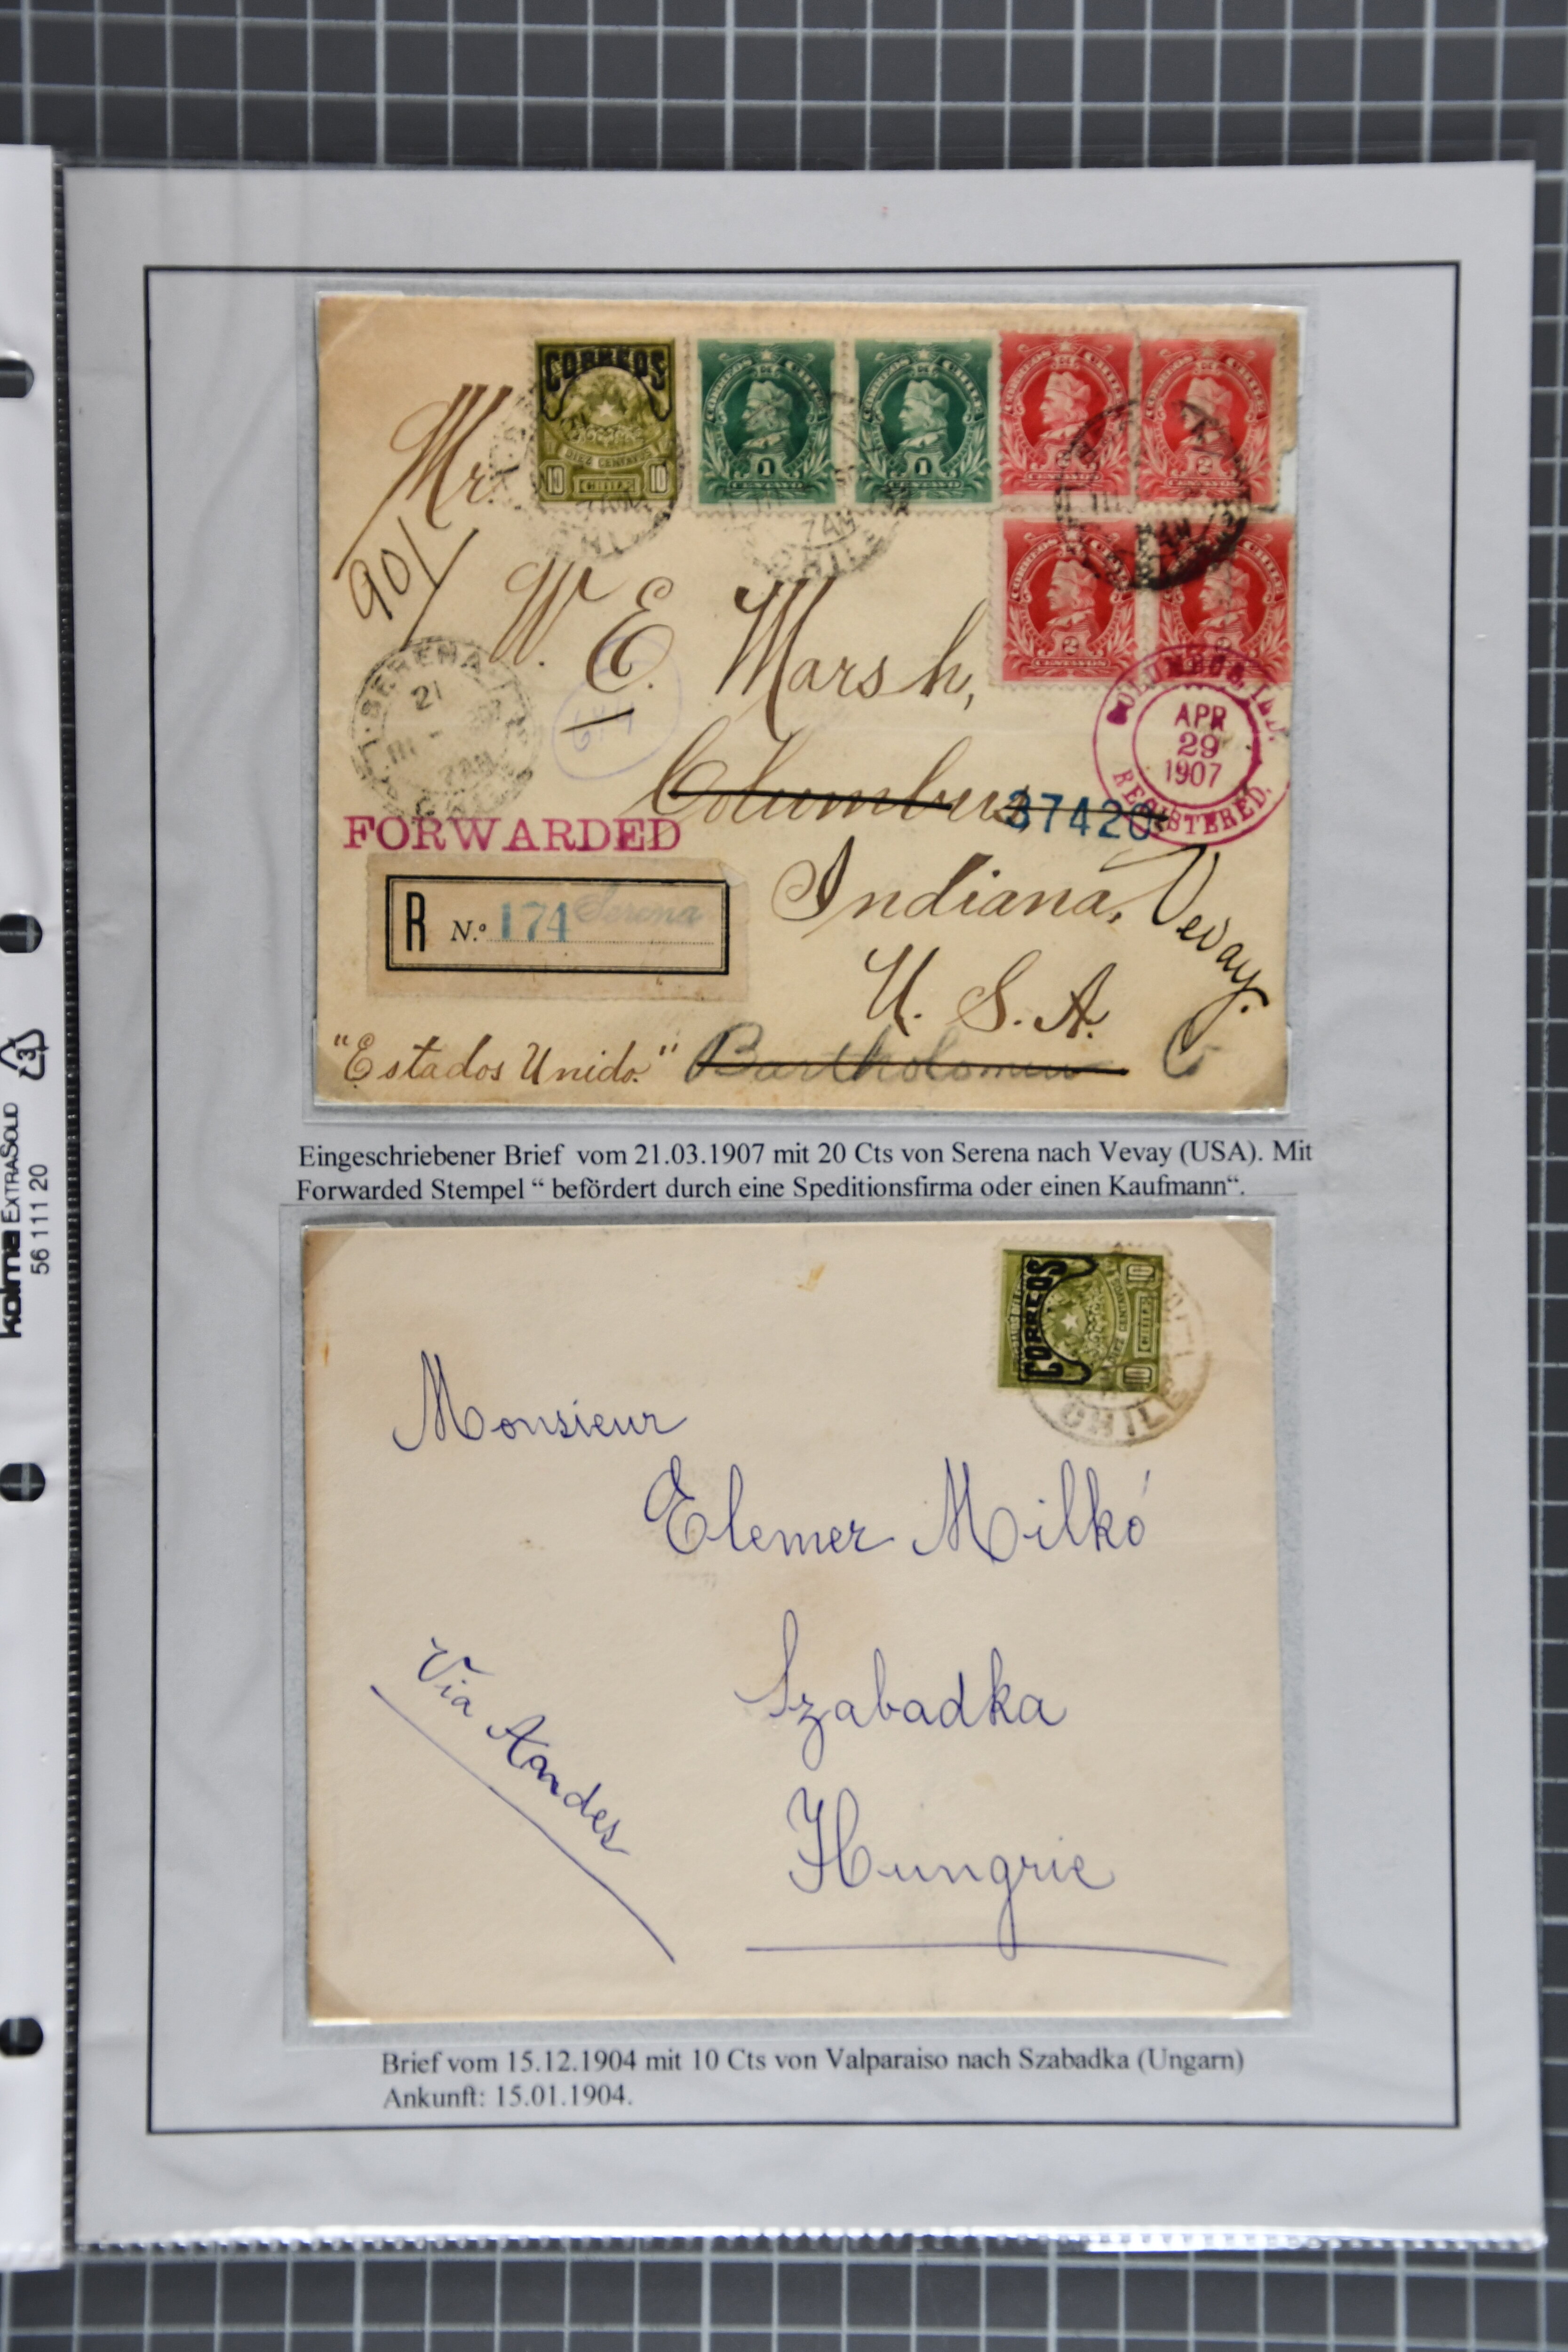 CORREOS
DIEZ CENTAVOS
10 CHILE 10
CORREOS DE CHILE
1
CENTAVO
CORREOS DE CHILE
1
CENTAVO
CORREOS DE CHILE
2
CENTAVOS
CORREOS DE CHILE
2
CENTAVOS
CORREOS
2
CENTAVOS
2
7AM
CHILE
Mr.
90/
W. E. Marsh,
SERENA
21
III
7AM
644
COLUMBUS, IND.
APR
29
1907
REGISTERED.
Columbus
37420
FORWARDED
Indiana, Vevay.
R N.º 174 Serena
U. S. A.
"Estados Unido." Bartholomew Co
Eingeschriebener Brief vom 21.03.1907 mit 20 Cts von Serena nach Vevay (USA). Mit
Forwarded Stempel “ befördert durch eine Speditionsfirma oder einen Kaufmann“.
CORREOS
DIEZ CENTAVOS
10 CHILE 10
CHILE
Monsieur
Elemer Milkó
Szabadka
Hungrie
Via Aandes
Brief vom 15.12.1904 mit 10 Cts von Valparaiso nach Szabadka (Ungarn)
Ankunft: 15.01.1904.
kolma EXTRASOLID
56 111 20
3